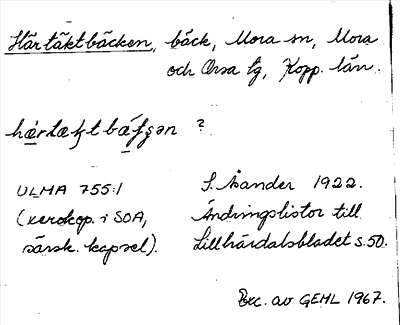 Härtäktbäcken, bäck, Mora sn, Mora
och Orsa tg, Kopp. län.
ULMA 755:1
(xerokop. i SOA,
särsk. kapsel).
S. Åander 1922.
Ändringslistor till
Lillhärdalsbladet s. 50.
Exc. av GEHL 1967.